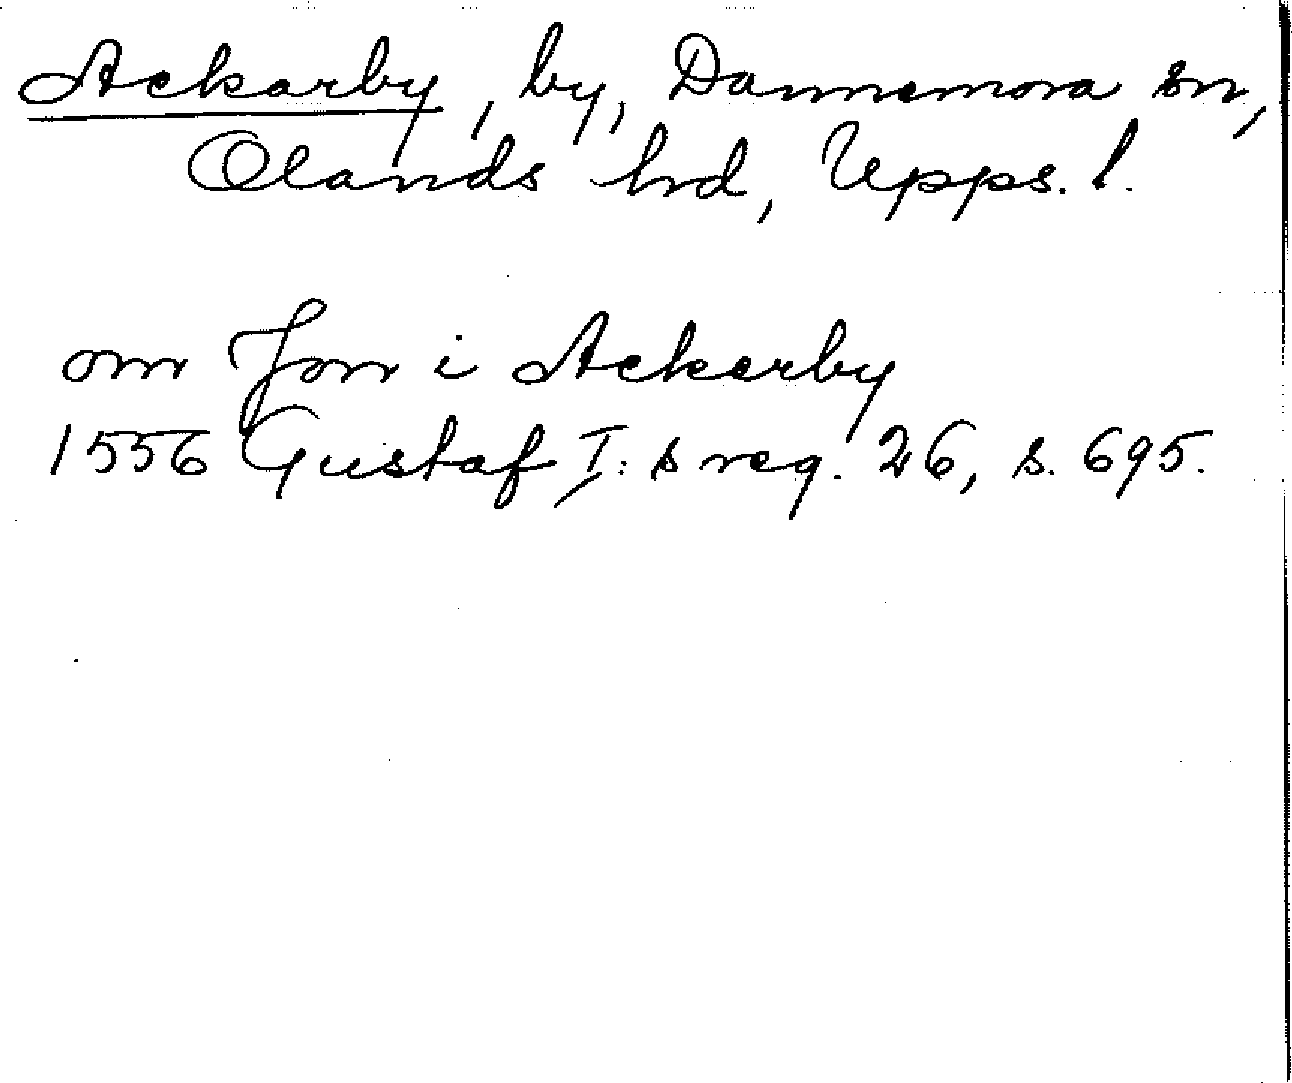 Ackarby, by, Dannemora sn,
Olands hd, Upps. l.
om Jon i Ackerby
1556 Gustaf I:s reg. 26, s. 695.